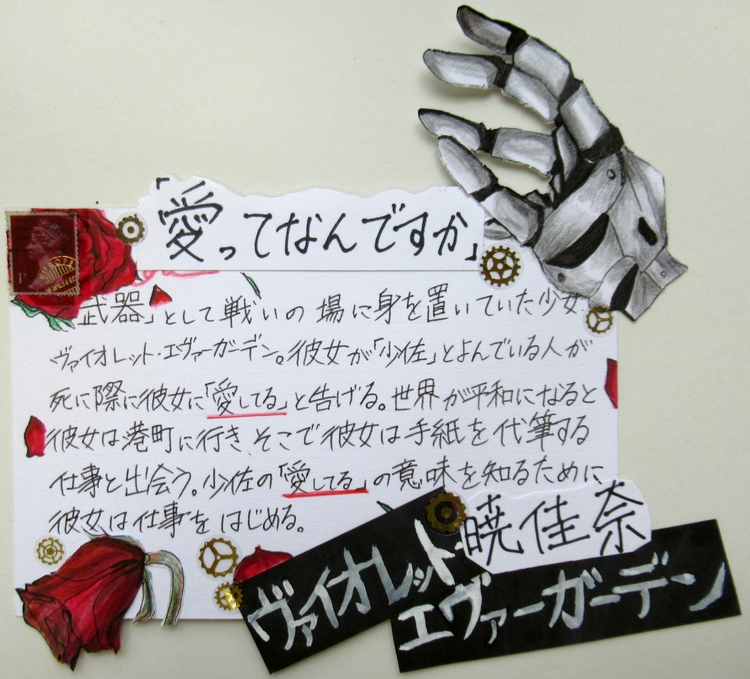 「愛ってなんですか」
「武器」として戦いの場に身を置いていた少女
ヴァイオレット・エヴァーガーデン。彼女が「少佐」とよんでいる人が
死に際に彼女に「愛してる」と告げる。世界が平和になると
彼女は港町に行き、そこで彼女は手紙を代筆する
仕事と出会う。少佐の「愛してる」の意味を知るために
彼女は仕事をはじめる。
暁佳奈
ヴァイオレット・
エヴァーガーデン